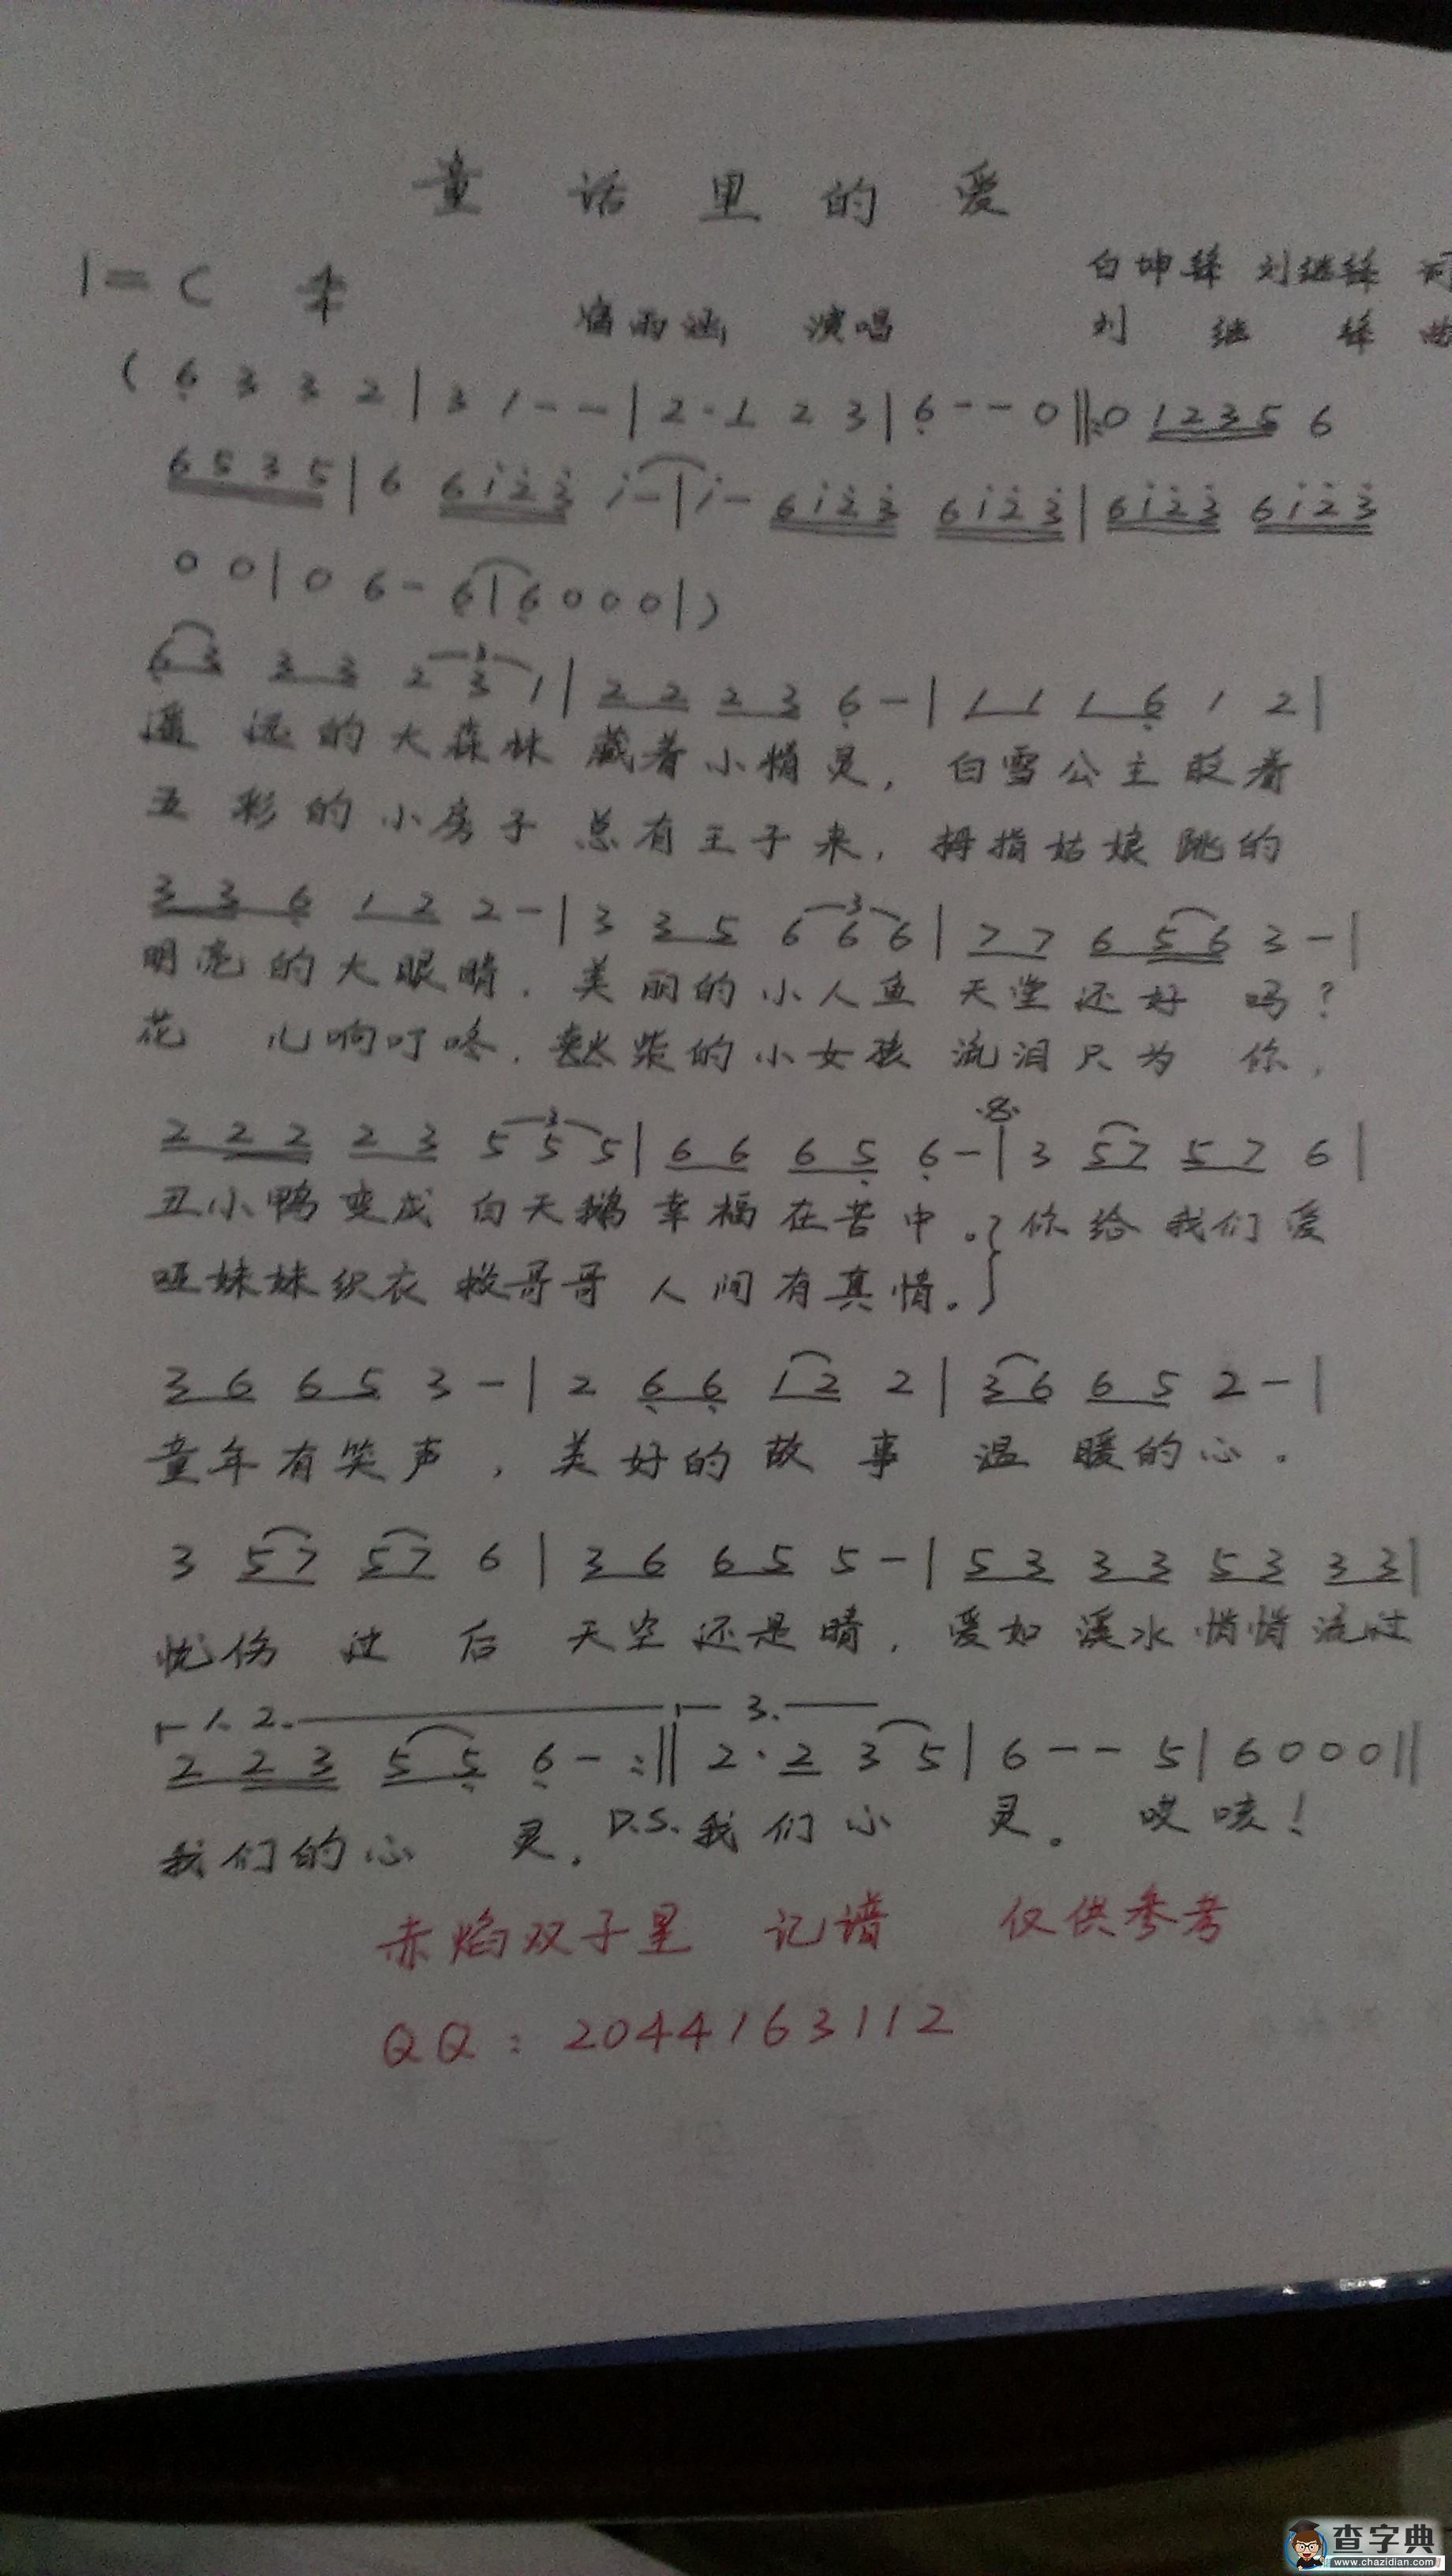 童话里的爱
1=C 4/4 白坤锋 刘继锋 词
雨涵 演唱 刘继锋 曲
( 6 3 3 2 | 3 1 - - | 2 · 1 2 3 | 6 - - 0 ‖: 0 1 2 3 5 6
6 5 3 5 | 6 6 i 2 3 i - | i - 6 i 2 3 6 i 2 3 | 6 i 2 3 6 i 2 3
0 0 | 0 6 - 6 | 6 0 0 0 | )
6 3 3 3 2 3 1 | 2 2 2 3 6 - | 1 1 1 6 1 2 |
遥远的大森林 藏着小精灵, 白雪公主眨着
五彩的小房子 总有王子来, 拇指姑娘跳的
3 3 6 1 2 2 - | 3 3 5 6 6 6 | 7 7 6 5 6 3 - |
明亮的大眼睛. 美丽的小人鱼 天堂还好吗?
花儿响叮咚. 卖火柴的小女孩 流泪只为你,
2 2 2 2 3 5 5 5 | 6 6 6 5 6 - | 3 5 7 5 7 6 |
丑小鸭变成白天鹅 幸福在苦中。} 你给我们爱
哑妹妹织衣救哥哥 人间有真情。}
3 6 6 5 3 - | 2 6 6 1 2 2 | 3 6 6 5 2 - |
童年有笑声, 美好的故事 温暖的心.
3 5 7 5 7 6 | 3 6 6 5 5 - | 5 3 3 3 5 3 3 3 |
忧伤过后 天空还是晴, 爱如溪水悄悄流过
1. 2. 3.
2 2 3 5 5 6 - :‖ 2 · 2 3 5 | 6 - - 5 | 6 0 0 0 ‖
我们的心灵. D.S. 我们心灵。 哎咳!
赤焰双子星 记谱 仅供参考
QQ: 2044163112
查字典
www.chazidian.com